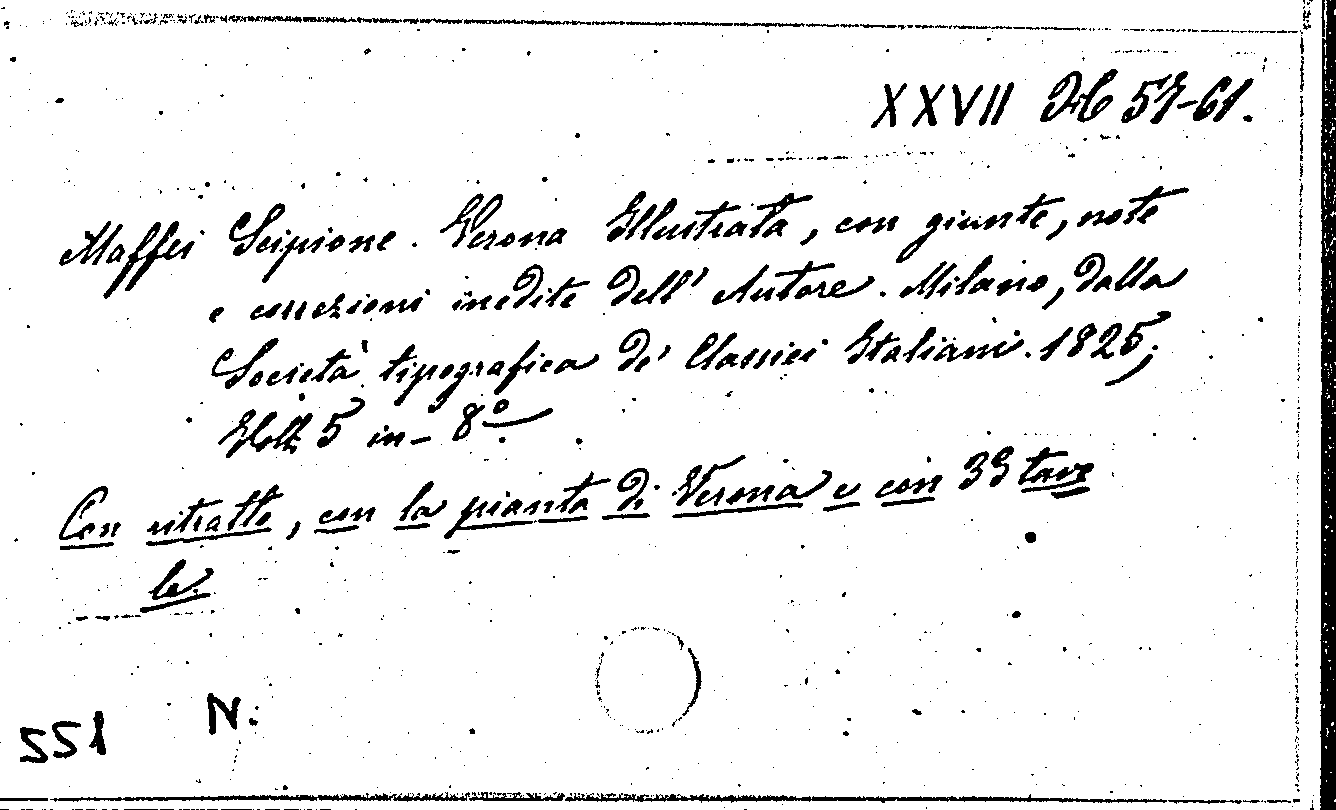 XXVII H 57-61.
Maffei Scipione. Verona Illustrata, con giunte, note
e correzioni inedite dell' Autore. Milano, dalla
Società tipografica de' Classici Italiani. 1825;
Voll. 5 in-8º
Con ritratto, con la pianta di Verona e con 39 tavo
le.
551 N.